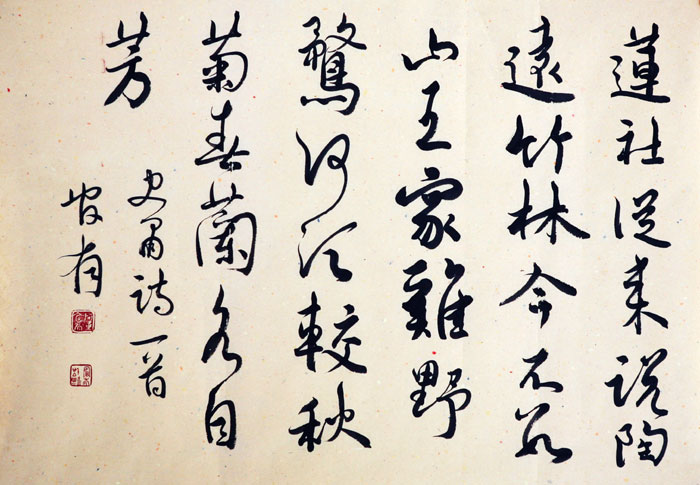 蓮社從来説陶
遠竹林今不数
山王家雞野
鶩何須較秋
菊春蘭各自
芳
史肅詩一首
有